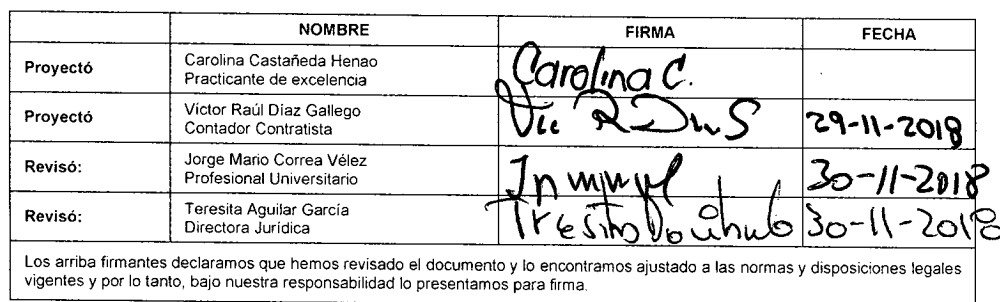 NOMBRE FIRMA FECHA
Proyectó Carolina Castañeda Henao
Practicante de excelencia Carolina C.
Proyectó Víctor Raúl Díaz Gallego
Contador Contratista 29-11-2018
Revisó: Jorge Mario Correa Vélez
Profesional Universitario 30-11-2018
Revisó: Teresita Aguilar García
Directora Jurídica 30-11-2018
Los arriba firmantes declaramos que hemos revisado el documento y lo encontramos ajustado a las normas y disposiciones legales
vigentes y por lo tanto, bajo nuestra responsabilidad lo presentamos para firma.